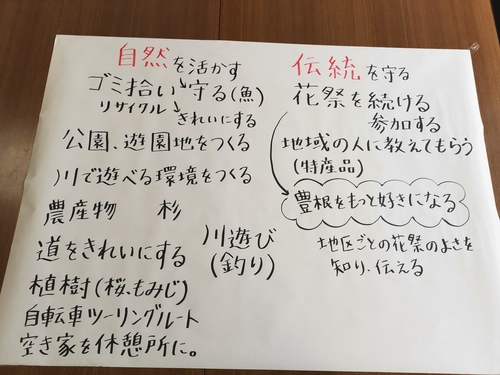 自然を活かす
ゴミ拾い→守る(魚)
リサイクル→きれいにする
公園、遊園地をつくる
川で遊べる環境をつくる
農産物 杉
道をきれいにする
川遊び
(釣り)
植樹(桜、もみじ)
自転車ツーリングルート
空き家を休憩所に。
伝統を守る
花祭を続ける
参加する
地域の人に教えてもらう
(特産品)
豊根をもっと好きになる
地区ごとの花祭のよさを
知り、伝える